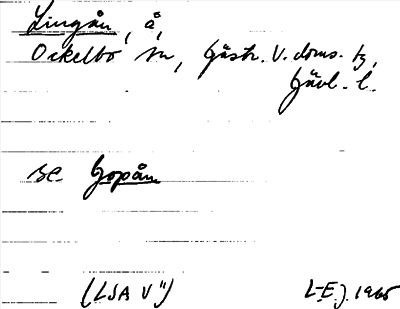 Lingån, å,
Ockelbo sn, Gästr. V. doms. tg,
Gävl. l.
se Gopån
(LSA V")
L-E. J. 1965